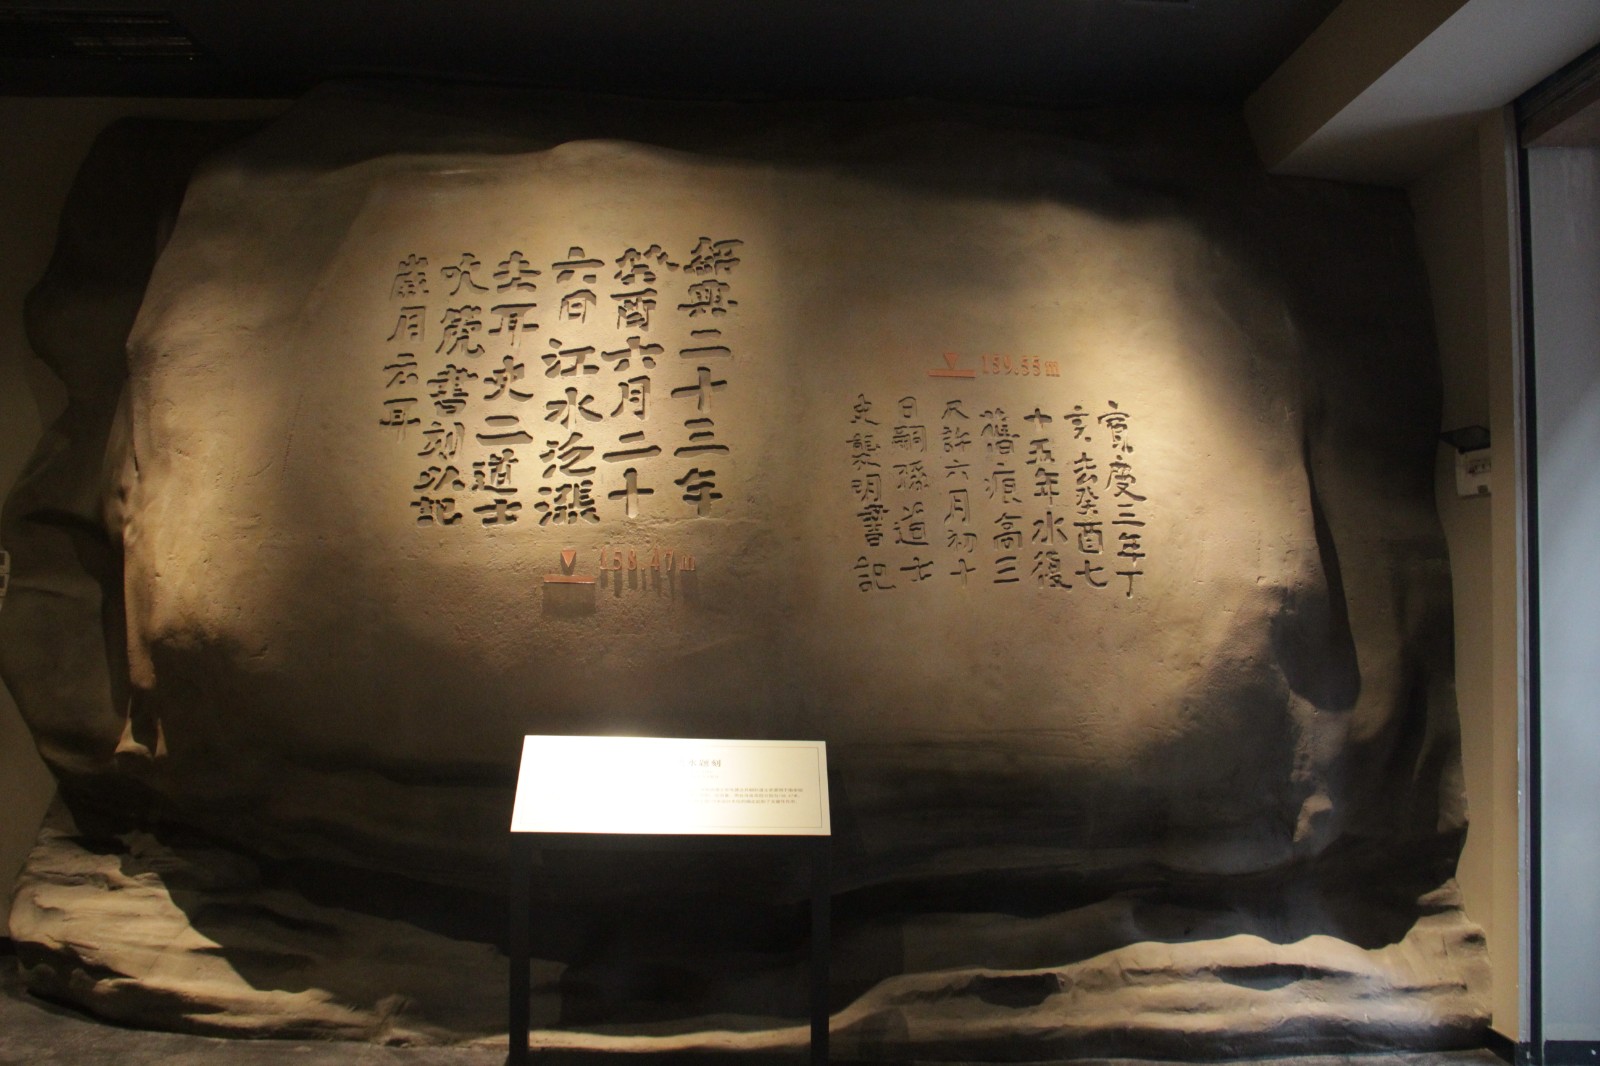 紹興二十三年
癸酉六月二十
六日江水泛漲
去耳史二道士
吹篪書刻以記
歲月云耳
158.47m
159.55m
寶慶三年丁
亥去癸酉七
十五年水復
舊痕高三
尺許六月初十
日嗣孫道士
史襲明書記